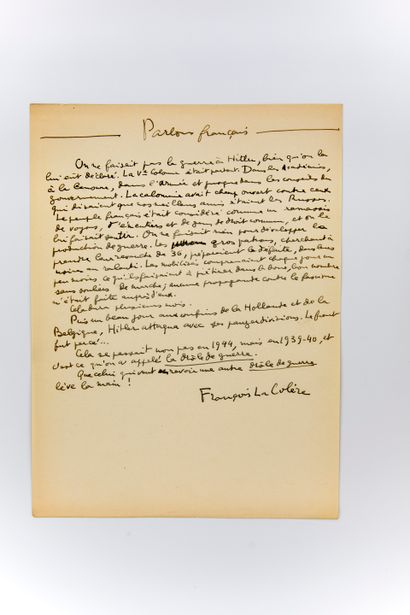 Parlons français
On ne faisait pas la guerre à Hitler, bien qu'on la
lui eût déclarée. La Ve colonne était partout. Dans les Académies,
à la Censure, dans l'Armée et jusque dans les conseils du
gouvernement. La calomnie avait champ ouvert contre ceux
qui disaient que nos meilleurs amis étaient les Russes.
Le peuple français était considéré comme un ramassis
de voyous, d'émeutiers et de gens de droit commun, et on le
lui faisait sentir. On ne faisait rien pour développer la
production de guerre. Les gros patrons, cherchant à
prendre leur revanche de 36, préparaient la défaite, dans leurs
usines au ralenti. Les mobilisés comprenaient chaque jour un
peu moins ce qu'ils faisaient à piétiner dans la boue, bon nombre
sans souliers de marche; aucune propagande contre le fascisme
n'était faite auprès d'eux.
Cela dura plusieurs mois.
Puis un beau jour aux confins de la Hollande et de la
Belgique, Hitler attaque avec ses panzerdivisions. Le front
fut percé...
Cela se passait non pas en 1944, mais en 1939-40, et
c'est ce qu'on a appelé la drôle de guerre.
Que celui qui veut revoir une autre drôle de guerre
lève la main !
François La Colère